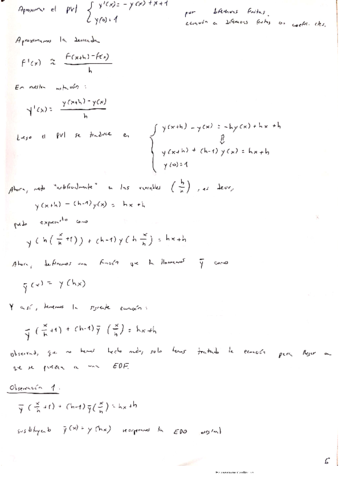 Aproximar el PVI { y'(x) = -y(x) + x + 1
y(0) = 1
por diferencias finitas,
ecuación a diferencias finitas
Aproximamos la derivada
F'(x) ≈ F(x+h) - F(x) / h
En nuestra notación:
y'(x) = y(x+h) - y(x) / h
Luego el PVI se traduce en { y(x+h) - y(x) = -hy(x) + hx + h
⇕
y(x+h) + (h-1) y(x) = hx + h
y(0) = 1
Ahora, "artificialmente" a las variables (h/x), es decir,
y(x+h) - (h-1) y(x) = hx + h
puede expresarse como
y(h(x/h + 1)) + (h-1) y(h x/h) = hx + h
Ahora, definimos una función que la llamaremos ȳ como
ȳ(x) = y(hx)
Y así, tenemos la siguiente ecuación:
ȳ(x/h + 1) + (h-1) ȳ(x/h) = hx + h
observad, que no hemos hecho nada, solo hemos tratado la ecuación para llegar a
que se parezca a una EDF.
Observación 1.
ȳ(x/h + 1) + (h-1) ȳ(x/h) = hx + h
sustituyendo ȳ(x) = y(hx) recuperamos la EDO original